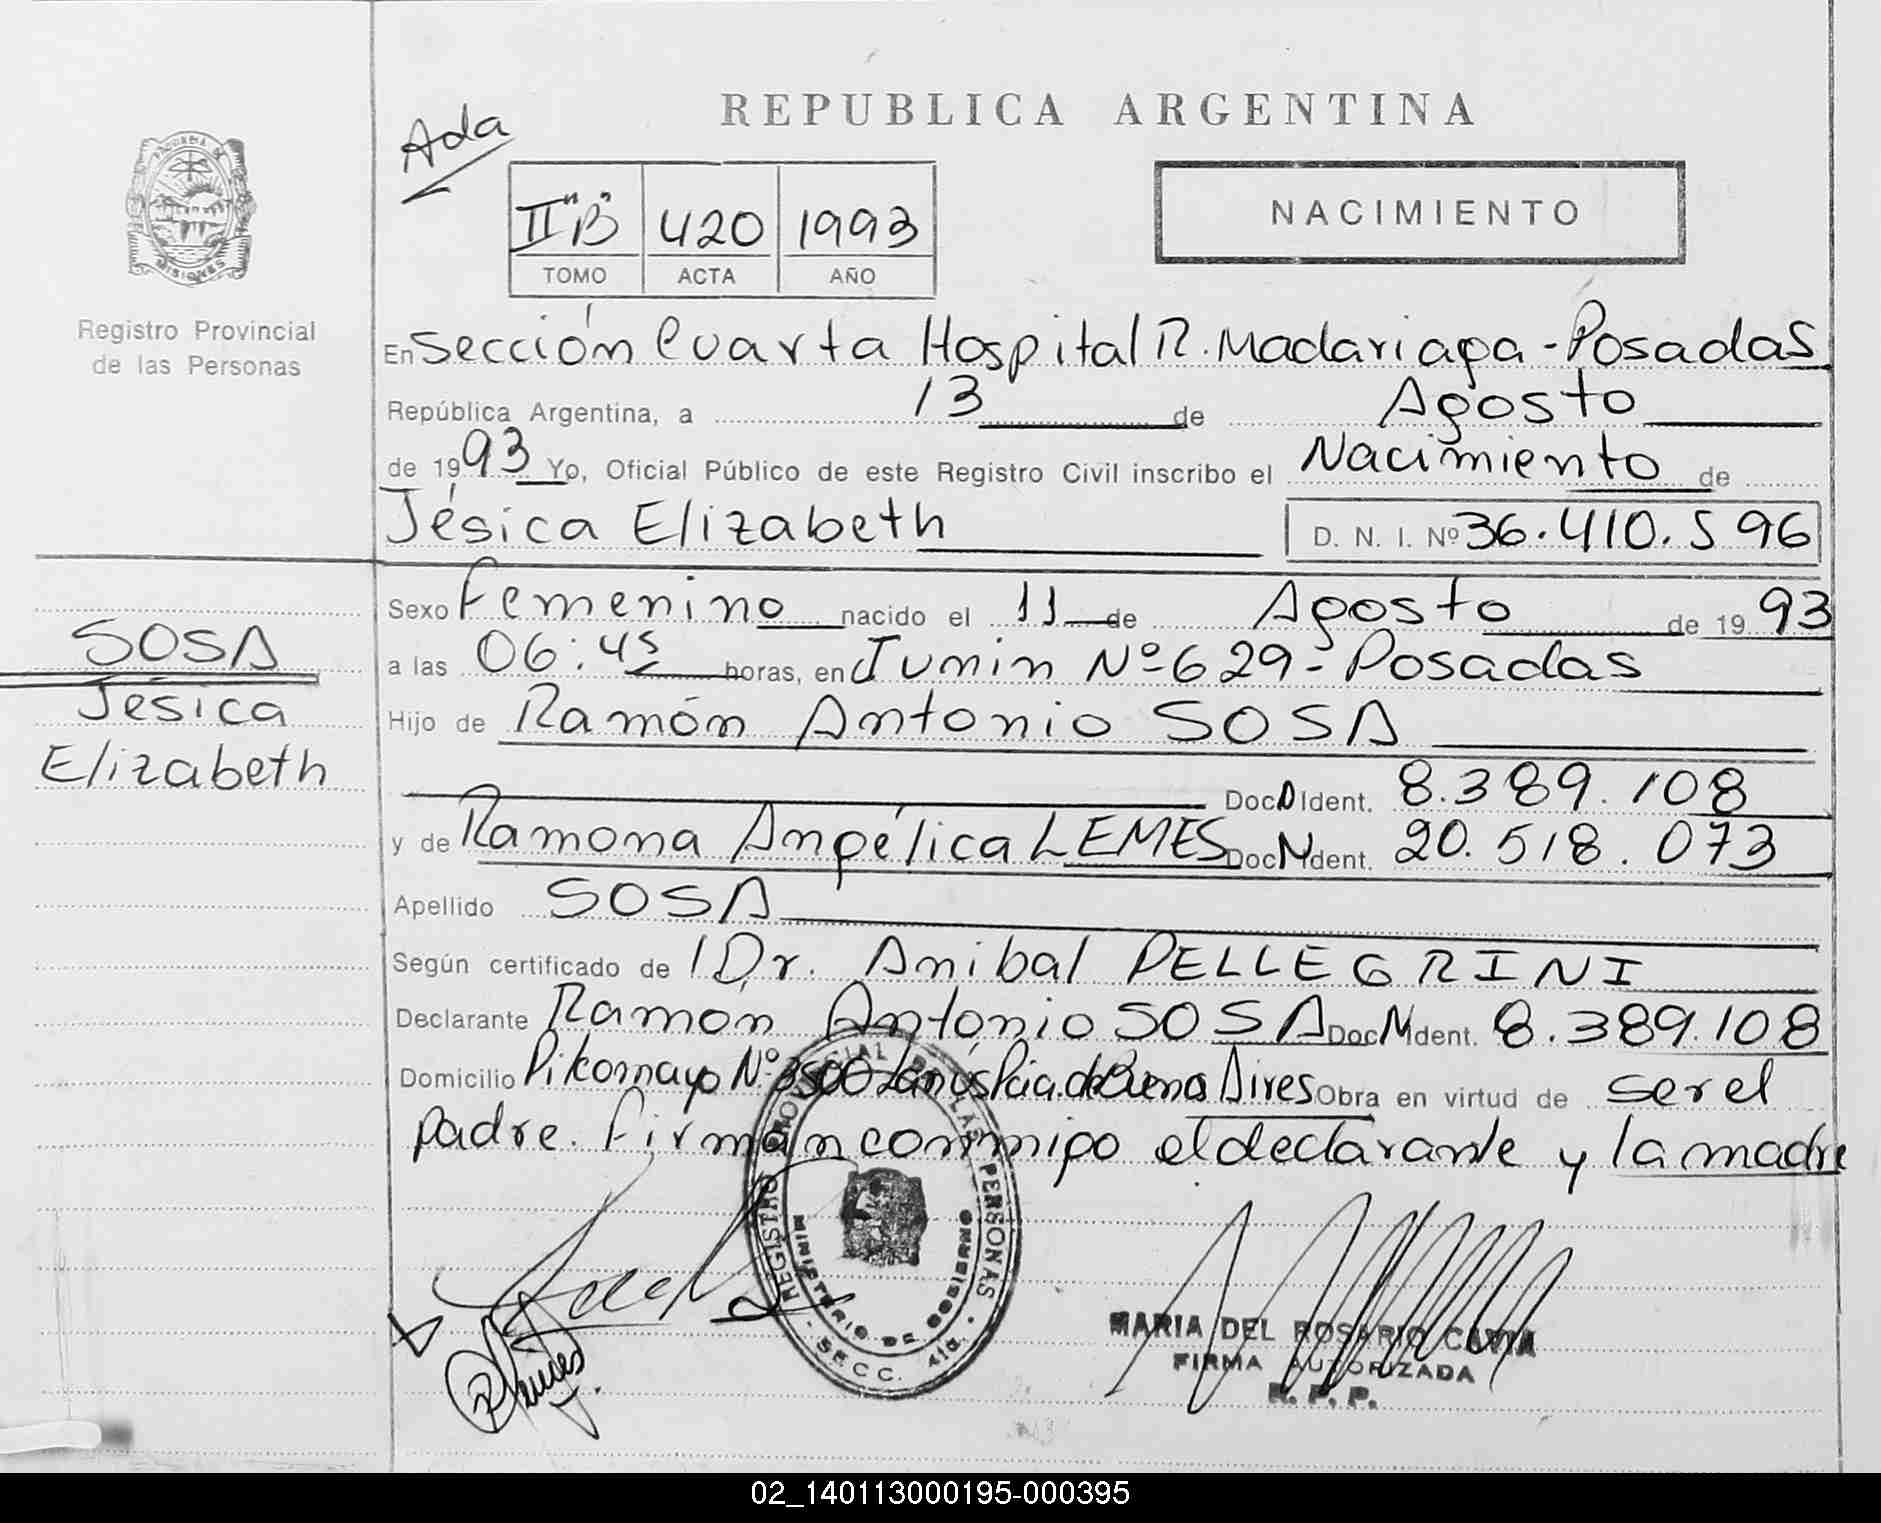 REPUBLICA ARGENTINA
Ada
PROVINCIA DE
MISIONES
II "B" 420 1993
TOMO ACTA AÑO
NACIMIENTO
Registro Provincial
de las Personas
En Sección Cuarta Hospital R. Madariaga - Posadas
República Argentina, a 13 de Agosto
de 1993 Yo, Oficial Público de este Registro Civil inscribo el Nacimiento de
Jésica Elizabeth D. N. I. Nº 36.410.596
SOSA
Jésica
Elizabeth
Sexo Femenino nacido el 11 de Agosto de 1993
a las 06:45 horas, en Junin Nº 629 - Posadas
Hijo de Ramón Antonio SOSA
Doc N Ident. 8.389.108
y de Ramona Angélica LEMES Doc N Ident. 20.518.073
Apellido SOSA
Según certificado de Dr. Anibal PELLEGRINI
Declarante Ramón Antonio SOSA Doc N Ident. 8.389.108
Domicilio Pilcomayo Nº 3500 Lanús Pcia. de Buenos Aires Obra en virtud de ser el
padre. Firman conmigo el declarante y la madre
REGISTRO PROVINCIAL DE LAS PERSONAS
MINISTERIO DE GOBIERNO
SECC. 4ta.
MARIA DEL ROSARIO
FIRMA AUTORIZADA
R. P. P.
02_140113000195-000395